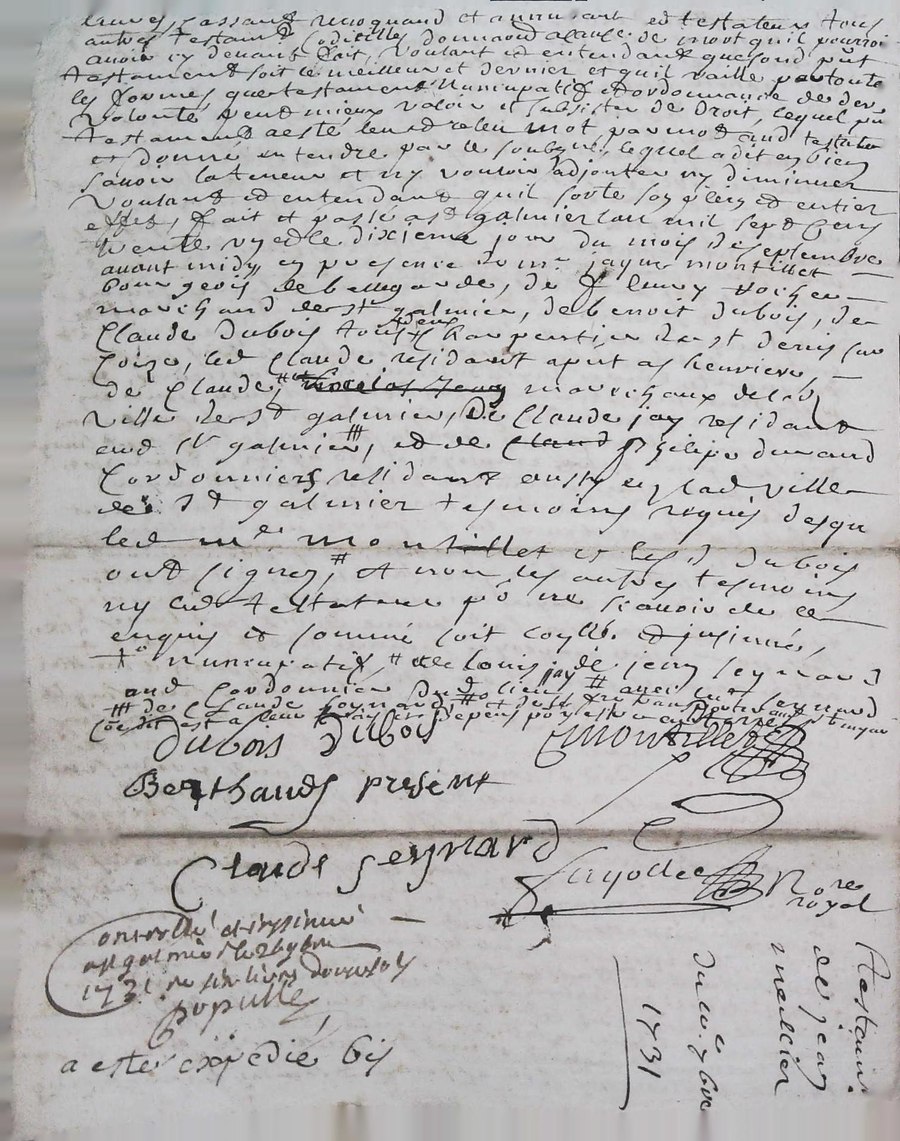 autres testamts codicilles donnaons a cause de mort quil pourroit
avoir cy devant fait, voulant et entendant que son put
testament soit le meilleur et dernier et quil vaille par toute
les formes que testament nuncupatif et ordonnance de der
volonté peut mieux valoir et subsister de droit, lequel pnt
testament a esté leu et releu mot par mot aud testateur
et donné entendre par le soubzné, lequel a dit en bien
savoir la teneur et ny vouloir adjouter ny diminuer
voulant et entendant quil sorte son plein et entier
effet, fait et passé a st galmier lan mil sept cens
trente un et le dixieme jour du mois de septembre
avant midy en presence de mre jaque montillet
bourgeois de bellegarde, de fleury
marchand de st galmier, de benoit dubois, de
Claude dubois tous deux charpentier de st denis sur
Coize, led Claude residant
de Claude, marechaux de lad
ville de st galmier, de Claude jay residant
aud st galmier, et de philipe durand
Cordonniers residant aussy en lad ville
de st galmier tesmoins requis desqu
led mre montillet et les d dubois
ont signez, et non les autres tesmoins
ny led testateur pr ne scavoir de ce
enquis et sommé soit controllé et insinué,
nuncupatif, # de louis jay de jean seynard
aud Cordonnier dud lieu # avec led seynard
# de Claude seynard
Dubois Dubois Montillet
Berthaud present
Claude Seynard
Fayolle Nore royal
controllé et insinué
a st galmier le
1731 re six livres douze sols
Populle
a esté expédié bis
Testamt
de jean
meallier
Du 10e 7bre
1731